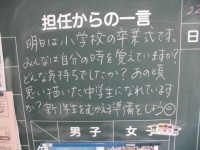 担任からの一言
明日は小学校の卒業式です。
みんなは自分の時を覚えていますか?
どんな気持ちでしたか? あの頃
思い描いた中学生になれています
か? 新1年生をむかえる準備をしよう
男子 女
日